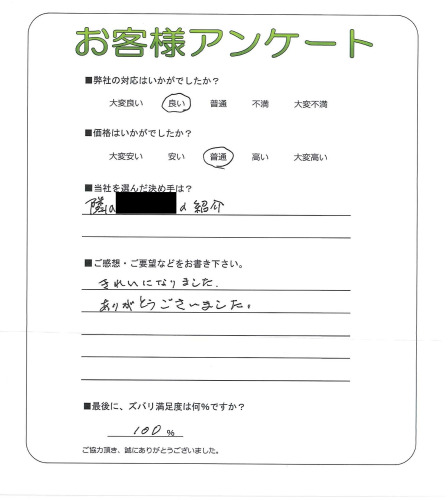 お客様アンケート
■弊社の対応はいかがでしたか？
大変良い 良い 普通 不満 大変不満
■価格はいかがでしたか？
大変安い 安い 普通 高い 大変高い
■当社を選んだ決め手は？
隣の の紹介
■ご感想・ご要望などをお書き下さい。
きれいになりました.
ありがとうございました。
■最後に、ズバリ満足度は何%ですか？
100 %
ご協力頂き、誠にありがとうございました。